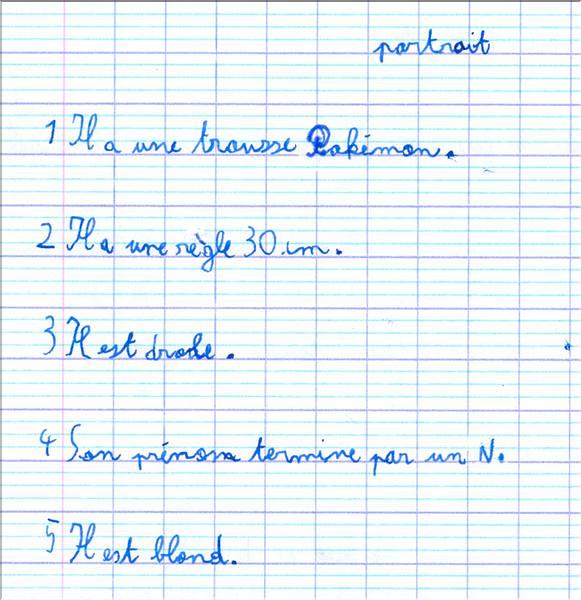 portrait
1 Il a une trousse Pokémon.
2 Il a une règle 30 cm.
3 Il est drole.
4 Son prénom termine par un N.
5 Il est blond.